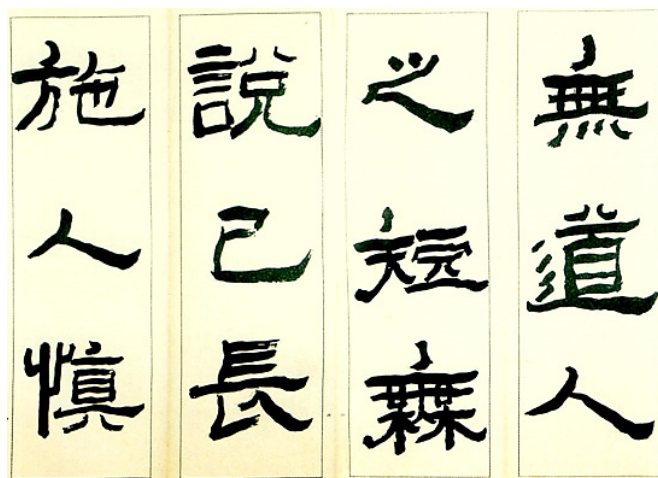 無道人
之短橆
說己長
施人慎